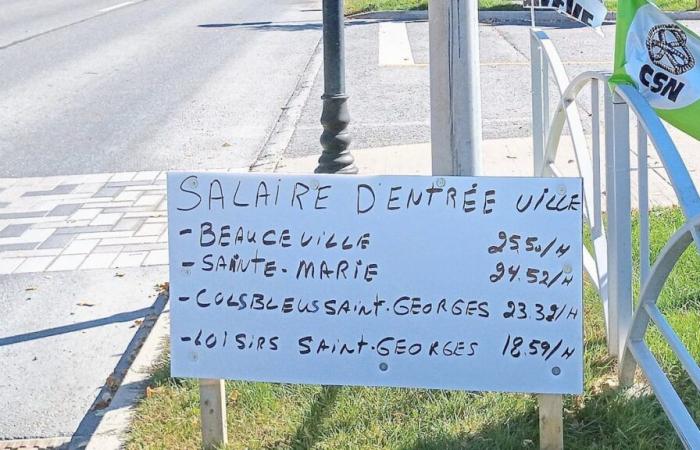 SALAIRE D'ENTRÉE VILLE
- BEAUCEVILLE 25.50/H
- SAINTE-MARIE 24.52/H
- COLSBLEUSSAINT-GEORGES 23.32/H
- LOISIRS SAINT-GEORGES 18.59/H
CSN